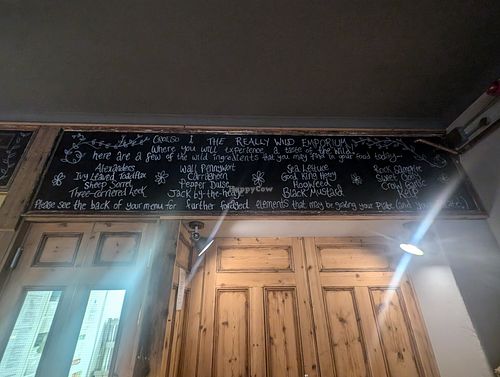 Croeso i THE REALLY WILD EMPORIUM
Where you will experience a taste of the wild
here are a few of the wild ingredients that you may find in your food today~
Alexanders
Ivy Leaved Toadflax
Sheep Sorrel
Three-cornered Leek
Wall Pennywort
Carrageen
Pepper Dulse
Jack-by-the-hedge
Sea Lettuce
Good King Henry
Hogweed
Black Mustard
Rock Samphire
Crow Garlic
Please see the back of your menu for further foraged elements that may be gracing your plate (and your palate!)
HappyCow